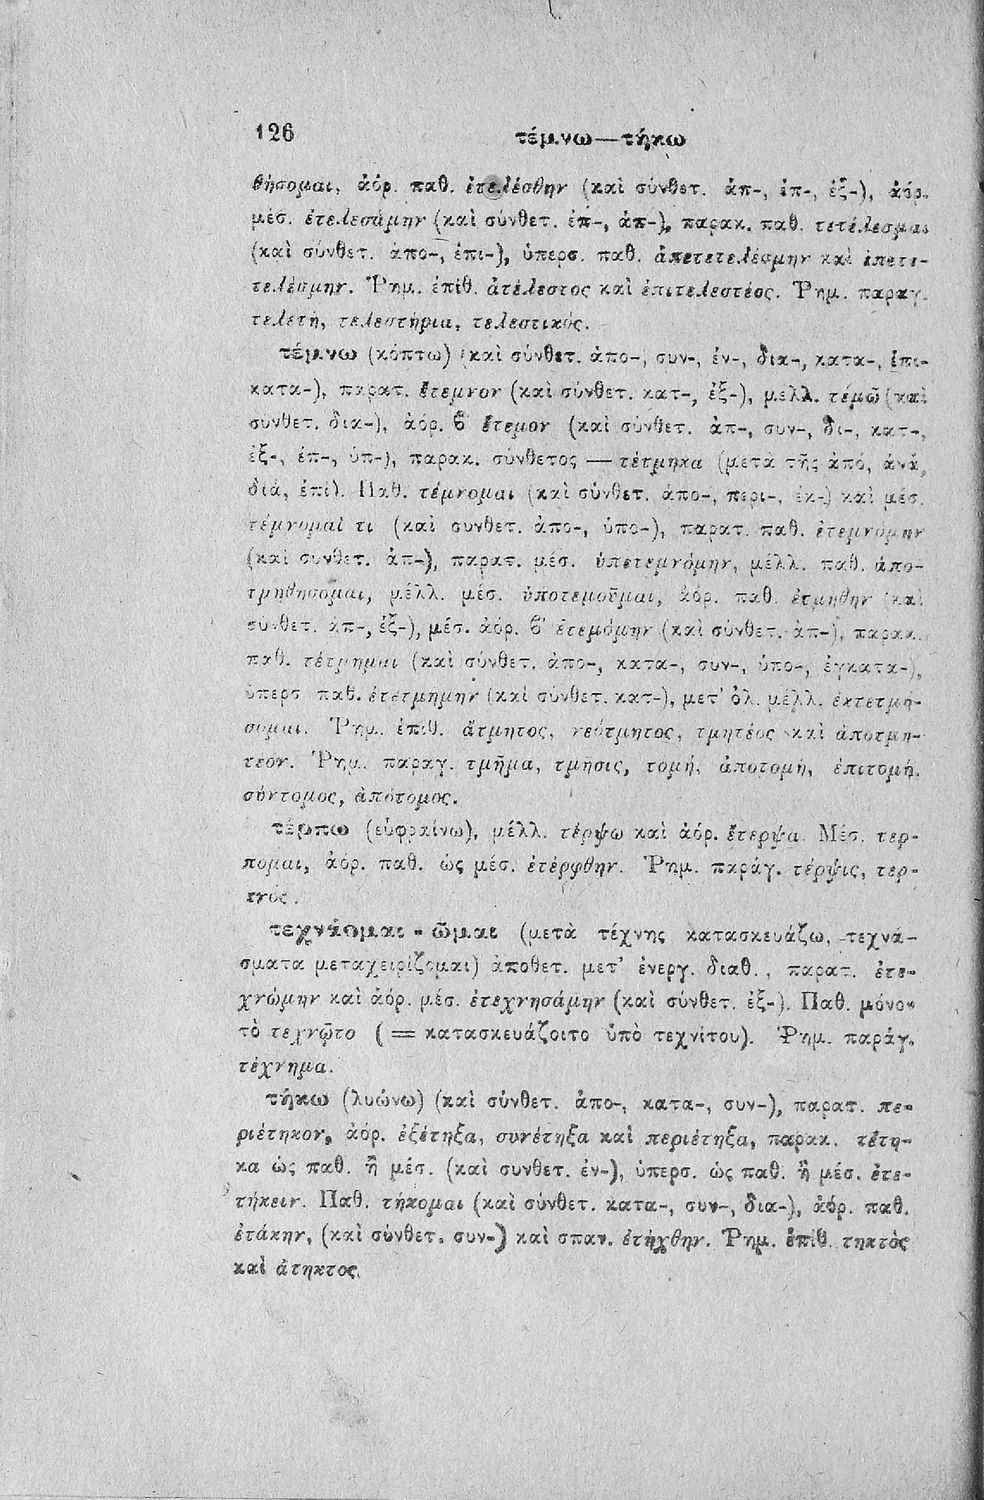 126
τέμνω—τήκω
θήσομαι, ἀόρ. παθ. ἐτελέσθην (καὶ σύνθετ. ἀπ-, ἐπ-, ἐξ-), ἀόρ.
μέσ. ἐτελεσάμην (καὶ σύνθετ. ἐπ-, ἀπ-), παρακ. παθ. τετέλεσμαι
(καὶ σύνθετ. ἀπο-, ἐπι-), ὑπερσ. παθ. ἀπετετελέσμην καὶ ἐπετε-
τελέσμην. Ῥημ. ἐπίθ. ἀτέλεστος καὶ ἐπιτελεστέος. Ῥημ. παραγ.
τελετή, τελεστήρια, τελεστικός.
τέμνω (κόπτω) (καὶ σύνθετ. ἀπο-, συν-, ἐν-, δια-, κατα-, ἐπι-
κατα-), παρατ. ἔτεμνον (καὶ σύνθετ. κατ-, ἐξ-), μελλ. τέμῶ (καὶ
συνθετ. δια-), ἀόρ. ϐ ἔτεμον (καὶ σύνθετ. ἀπ-, συν-, δι-, κατ-,
ἐξ-, ἐπ-, ὑπ-), παρακ. σύνθετος — τέτμηκα (μετὰ τῆς ἀπό, ἀνά,
διά, ἐπί). Παθ. τέμνομαι (καὶ σύνθετ. ἀπο-, περι-, ἐκ-) καὶ μέσ.
τέμνομαί τι (καὶ συνθετ. ἀπο-, ὑπο-), παρατ. παθ. ἐτεμνόμην
(καὶ συνθετ. ἀπ-), παρατ. μέσ. ὑπετεμνόμην, μέλλ. παθ. ἀπο-
τμηθήσομαι, μέλλ. μέσ. ὑποτεμοῦμαι, ἀόρ. παθ. ἐτμήθην (καὶ
συνθετ. ἀπ-, ἐξ-), μέσ. ἀόρ. ϐ' ἐτεμόμην (καὶ σύνθετ. ἀπ-), παρακ.
παθ. τέτμημαι (καὶ σύνθετ. ἀπο-, κατα-, συν-, ὑπο-, ἐγκατα-),
ὑπερσ. παθ. ἐτετμήμην (καὶ σύνθετ. κατ-), μετ' ὀλ. μέλλ. ἐκτετμή-
σομαι. Ῥημ. ἐπίθ. ἄτμητος, νεότμητος, τμητέος καὶ ἀποτμη-
τέον. Ῥημ. παράγ. τμῆμα, τμῆσις, τομή, ἀποτομή, ἐπιτομή,
σύντομος, ἀπότομος.
τέρπω (εὐφραίνω), μέλλ. τέρψω καὶ ἀόρ. ἔτερψα. Μέσ. τερ-
πομαι, ἀόρ. παθ. ὡς μέσ. ἐτέρφθην. Ῥημ. παράγ. τέρψις, τερ-
πνός.
τεχνάομαι - ῶμαι (μετὰ τέχνης κατασκευάζω, τεχνά-
σματα μεταχειρίζομαι) ἀποθετ. μετ' ἐνεργ. διαθ., παρατ. ἐτε-
χνώμην καὶ ἀόρ. μέσ. ἐτεχνησάμην (καὶ σύνθετ. ἐξ-). Παθ. μόνον
τὸ τεχνῷτο (= κατασκευάζοιτο ὑπὸ τεχνίτου). Ῥημ. παράγ.
τέχνημα.
τήκω (λυώνω) (καὶ σύνθετ. ἀπο-, κατα-, συν-), παρατ. πε-
ριέτηκον, ἀόρ. ἐξέτηξα, συνέτηξα καὶ περιέτηξα, παρακ. τέτη-
κα ὡς παθ. ἢ μέσ. (καὶ συνθετ. ἐν-), ὑπερσ. ὡς παθ. ἢ μέσ. ἐτε-
τήκειν. Παθ. τήκομαι (καὶ σύνθετ. κατα-, συν-, δια-), ἀόρ. παθ.
ἐτάκην, (καὶ σύνθετ. συν-) καὶ σπαν. ἐτήχθην. Ῥημ. ἐπίθ. τηκτὸς
καὶ ἄτηκτος.